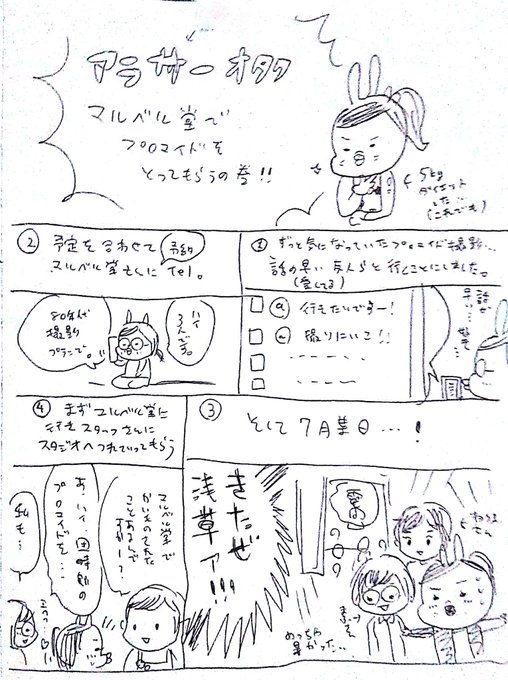 アラサーオタク
マルベル堂で
プロマイドを
とってもらうの巻!!
5kg
ダイエット
した…
(これでも)
① ずっと気になっていたプロマイド撮影…
話の早い友人らと行くことにしました。
(愛してる)
行きたいですー!
撮りにいこ!!
話が
早い…
好き…
② 予定を合わせて
予約
マルベル堂さんにTel。
ハイ
3人です。
80年代
撮影
プランで。
③ そして7月某日…!
きたぜ
浅草ァ!!!
めっちゃ
暑かった…
④ まずマルベル堂に
行きスタッフさんに
スタジオへつれていってもらう
マルベル堂で
かいものされた
ことあるんで
すかー?
あ、ハイ、
プロマイドを…
私も…